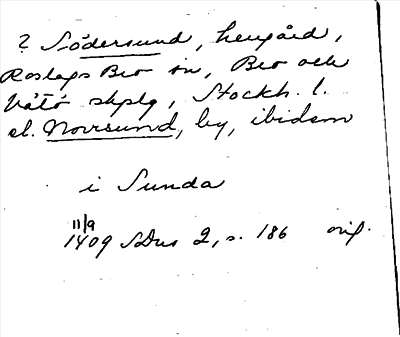 ? Södersund, herrgård,
Roslags Bro sn, Bro och
Vätö skplg, Stockh. l.
el. Norrsund, by, ibidem
i Sunda
11/9
1409 SDns 2, s. 186 orig.